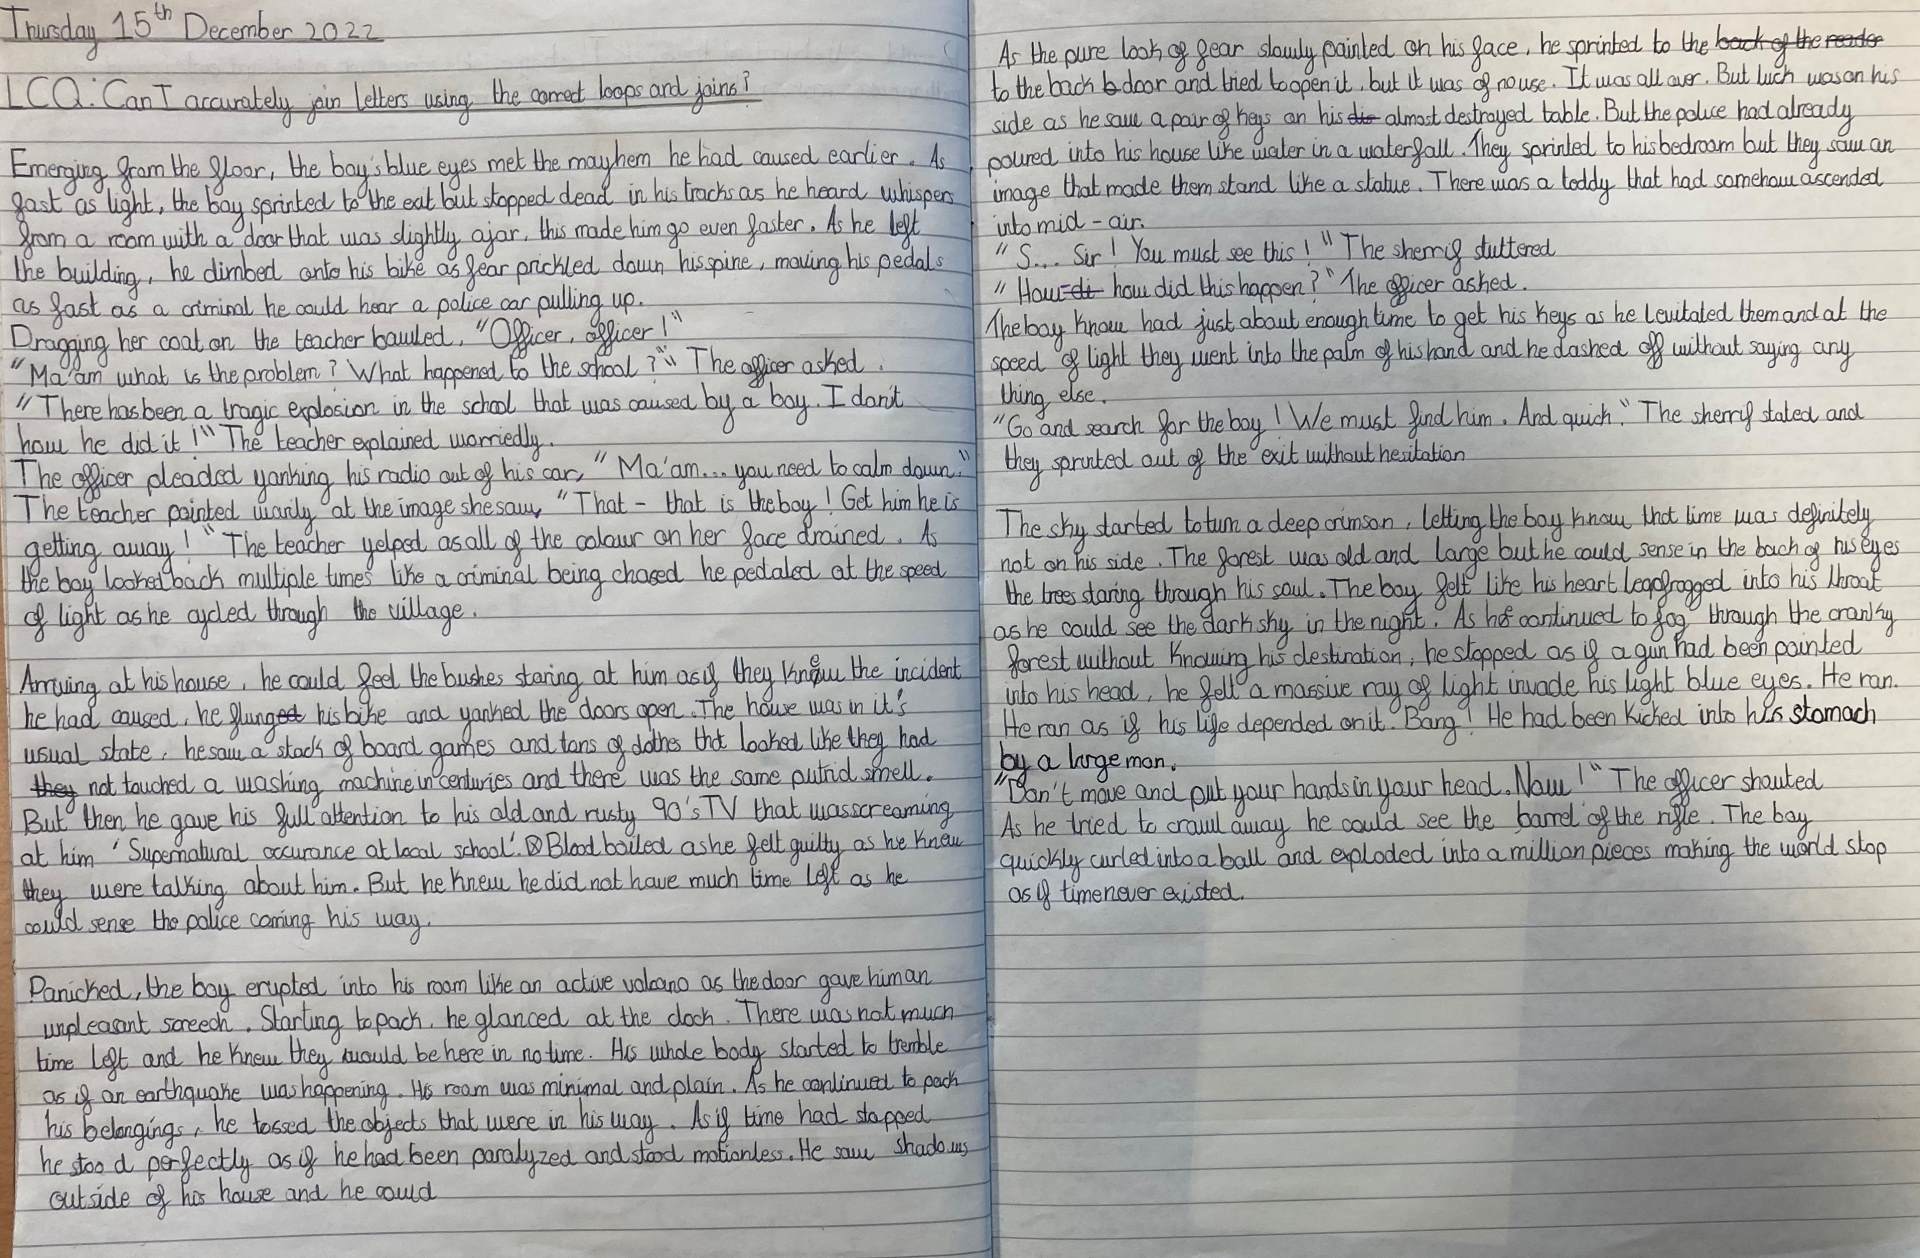 Thursday 15th December 2022
LCQ: Can I accurately join letters using the correct loops and joins?
Emerging from the floor, the boy's blue eyes met the mayhem he had caused earlier. As
fast as light, the boy sprinted to the exit but stopped dead in his tracks as he heard whispers
from a room with a door that was slightly ajar, this made him go even faster. As he left
the building, he climbed onto his bike as fear prickled down his spine, moving his pedals
as fast as a criminal he could hear a police car pulling up.
Dragging her coat on the teacher bawled, "Officer, officer!"
"Ma'am what is the problem? What happened to the school?" The officer asked.
"There has been a tragic explosion in the school that was caused by a boy. I don't
how he did it!" The teacher explained worriedly.
The officer pleaded yanking his radio out of his car, "Ma'am... you need to calm down."
The teacher pointed warily at the image she saw, "That - that is the boy! Get him he is
getting away!" The teacher yelped as all of the colour on her face drained. As
the boy looked back multiple times like a criminal being chased he pedaled at the speed
of light as he cycled through the village.
Arriving at his house, he could feel the bushes staring at him as if they knew the incident
he had caused, he flunged his bike and yanked the doors open. The house was in it's
usual state, he saw a stack of board games and tons of clothes that looked like they had
they not touched a washing machine in centuries and there was the same putrid smell.
But then he gave his full attention to his old and rusty 90's TV that was screaming
at him 'Supernatural occurance at local school'. Blood boiled as he felt guilty as he knew
they were talking about him. But he knew he did not have much time left as he
could sense the police coming his way.
Panicked, the boy erupted into his room like an active volcano as the door gave him an
unpleasant screech. Starting to pack, he glanced at the clock. There was not much
time left and he knew they would be here in no time. His whole body started to tremble
as if an earthquake was happening. His room was minimal and plain. As he continued to pack
his belongings, he tossed the objects that were in his way. As if time had stopped
he stood perfectly as if he had been paralyzed and stood motionless. He saw shadows
outside of his house and he could
As the pure look of fear slowly painted on his face, he sprinted to the back of the reader
to the back door and tried to open it, but it was of no use. It was all over. But luck was on his
side as he saw a pair of keys on his dis almost destroyed table. But the police had already
poured into his house like water in a waterfall. They sprinted to his bedroom but they saw an
image that made them stand like a statue. There was a teddy that had somehow ascended
into mid-air.
"S... Sir! You must see this!" The sherrif stuttered
"How di how did this happen?" The officer asked.
The boy know had just about enough time to get his keys as he levitated them and at the
speed of light they went into the palm of his hand and he dashed off without saying any
thing else.
"Go and search for the boy! We must find him. And quick." The sherrif stated and
they sprinted out of the exit without hesitation
The sky started to turn a deep crimson, letting the boy know that time was definitely
not on his side. The forest was old and large but he could sense in the back of his eyes
the trees staring through his soul. The boy felt like his heart leapfrogged into his throat
as he could see the dark sky in the night. As he continued to jog through the cranky
forest without knowing his destination, he stopped as if a gun had been pointed
into his head, he felt a massive ray of light invade his light blue eyes. He ran.
He ran as if his life depended on it. Bang! He had been kicked into his stomach
by a large man.
"Don't move and put your hands in your head. Now!" The officer shouted
As he tried to crawl away he could see the barrel of the rifle. The boy
quickly curled into a ball and exploded into a million pieces making the world stop
as if time never existed.